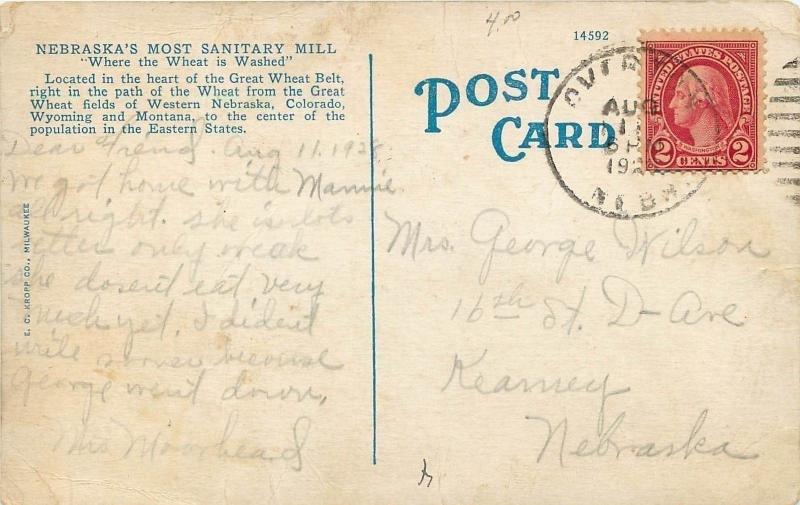 NEBRASKA'S MOST SANITARY MILL
"Where the Wheat is Washed"
Located in the heart of the Great Wheat Belt,
right in the path of the Wheat from the Great
Wheat fields of Western Nebraska, Colorado,
Wyoming and Montana, to the center of the
population in the Eastern States.
Dear Friend, Aug 11, 1928
We got home with Mamie
all right. she is lots
better only weak
she dosent eat very
much yet, I dident
write sooner because
George went down,
Mrs Moorhead
E. C. KROPP CO., MILWAUKEE
4.00
14592
POST
CARD
AUG
11
192
NEBR.
UNITED STATES POSTAGE
WASHINGTON
2 CENTS 2
Mrs. George Wilson
16th St. D-Ave
Kearney
Nebraska